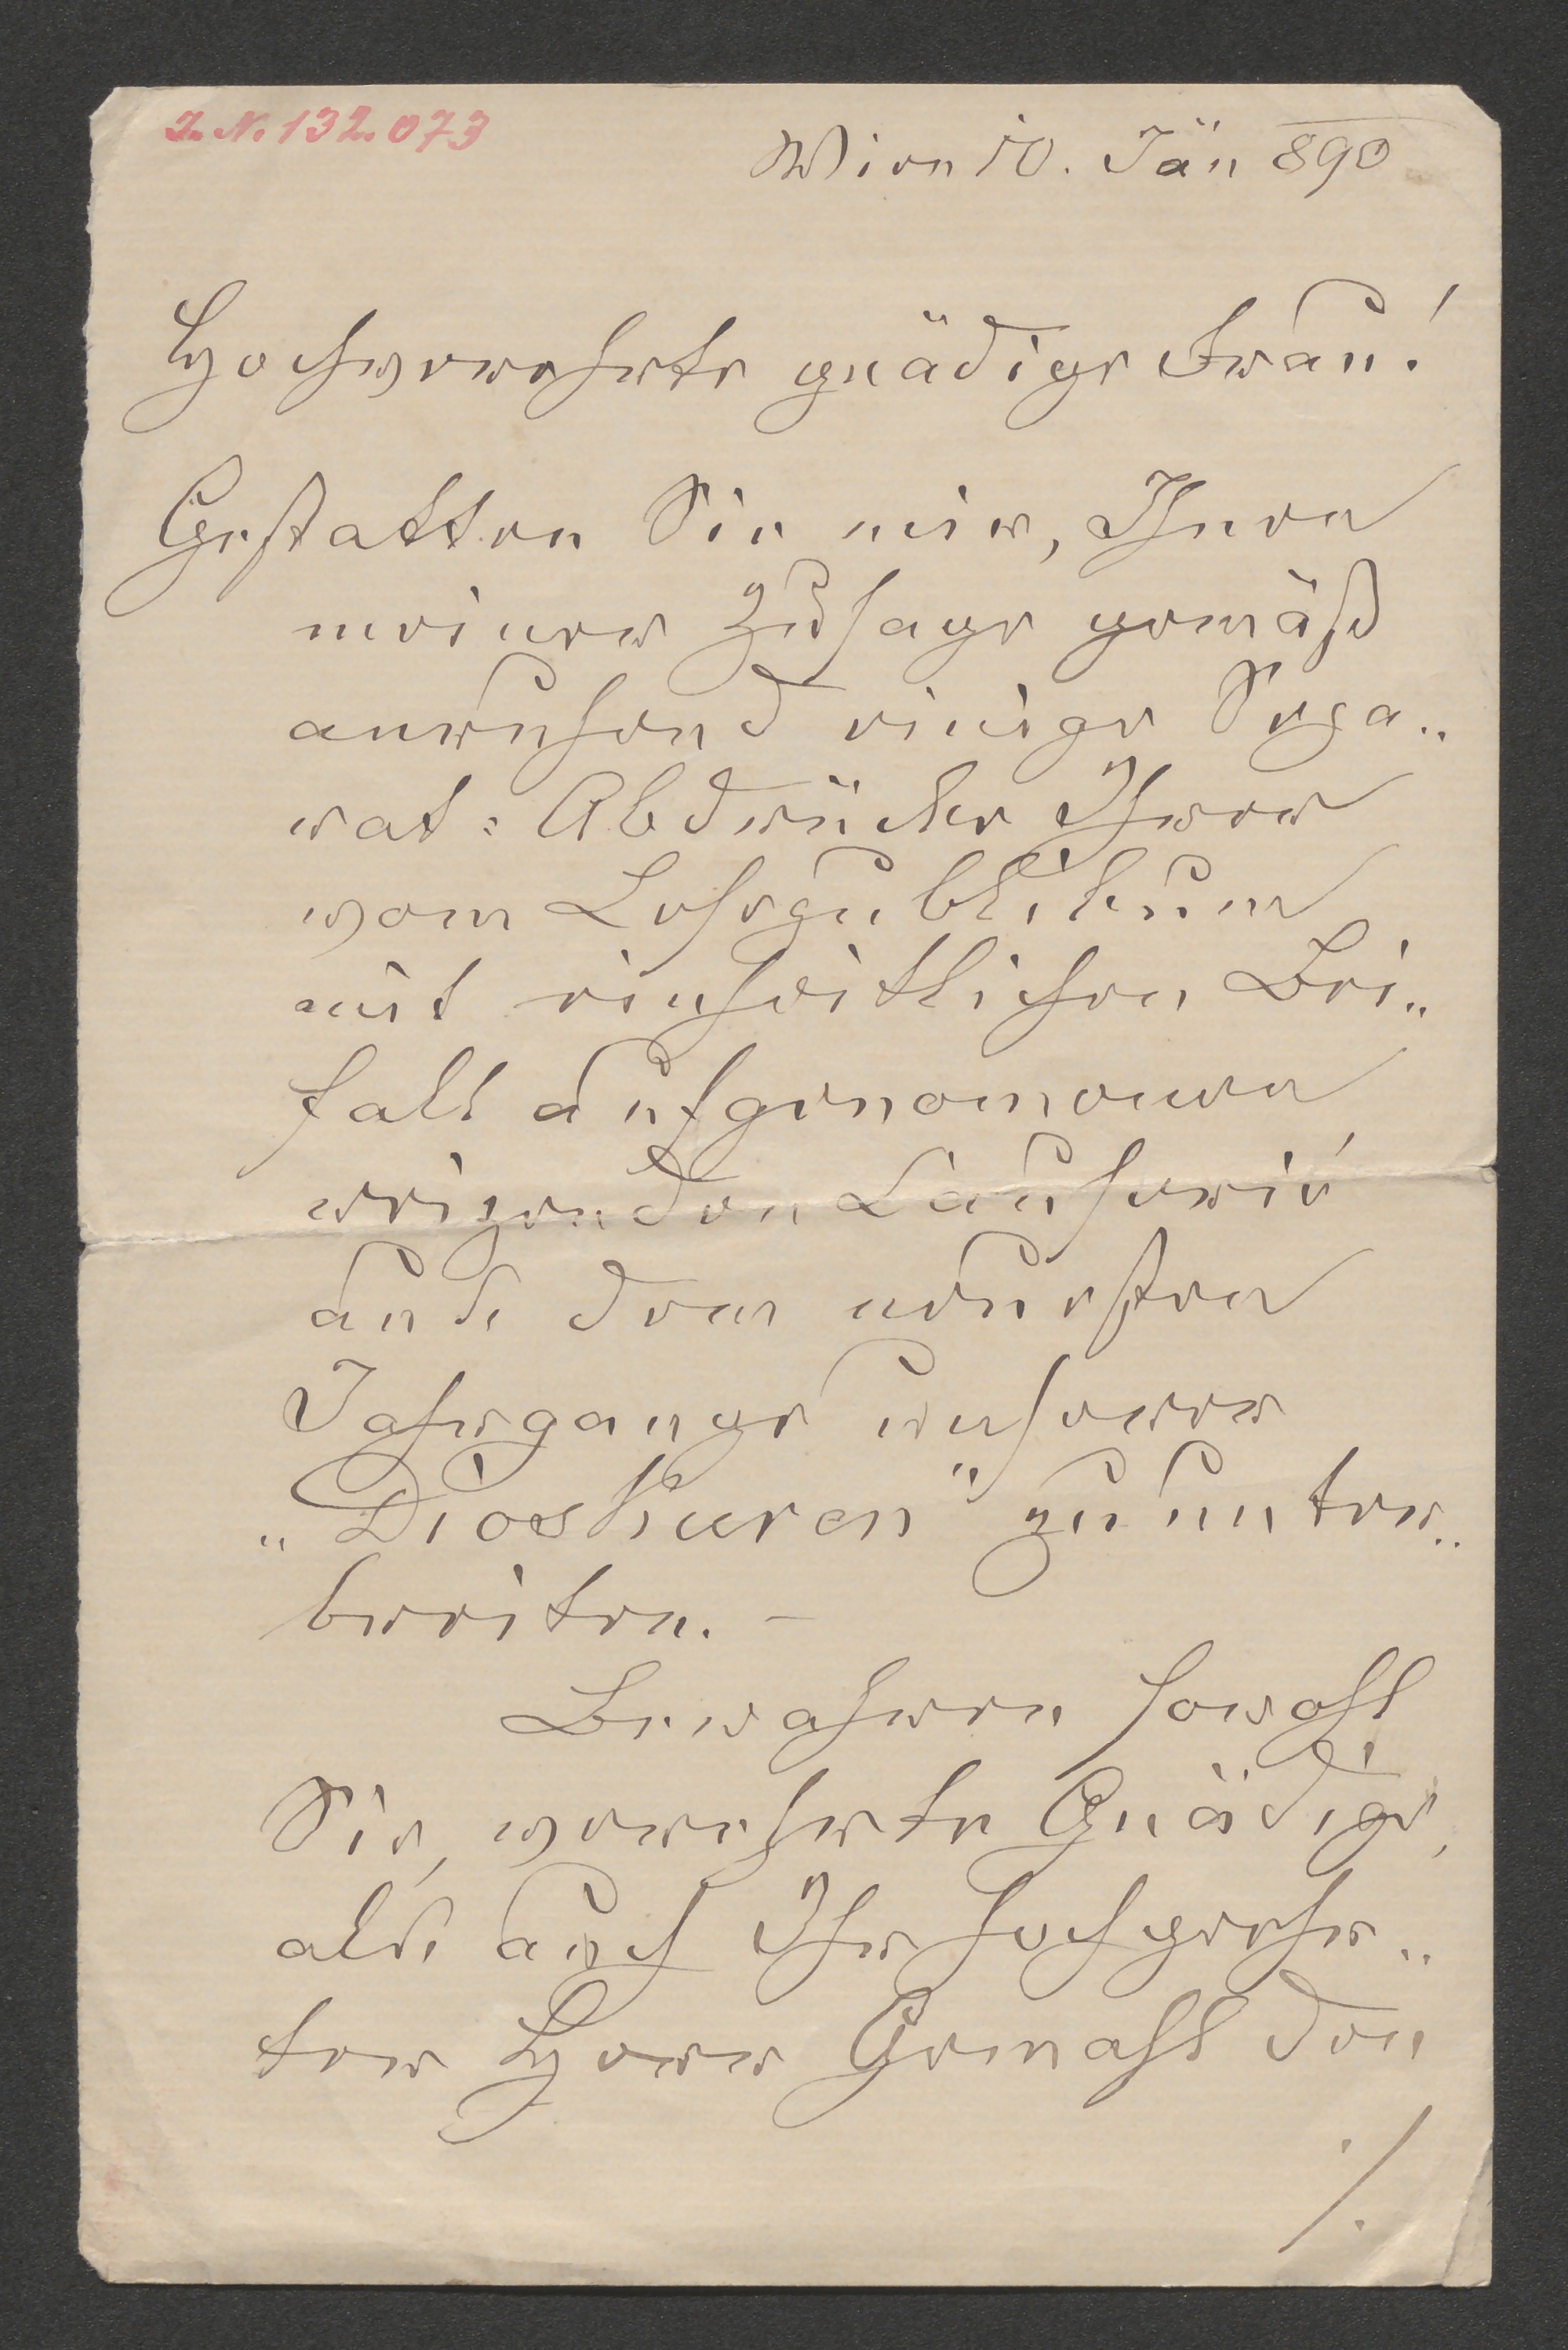 I. N. 132.073
Wien 10. Jän 890
Hochverehrte gnädige Frau!
Gestatten Sie mir, Ihnen
meiner Zusage gemäß
anruhend einige Sepa„
rat-Abdrücke Ihrer
vom Lesepublikum
mit einheitlichen Bei„
fall aufgenommenen
reizenden Causerie
aus dem neuesten
Jahrgange unserer
„Dioskuren" zu unter„
breiten. –
Bewahren sowohl
Sie, verehrte Gnädige,
als auch Ihr hochgeehr„
ter Herr Gemahl den
./.